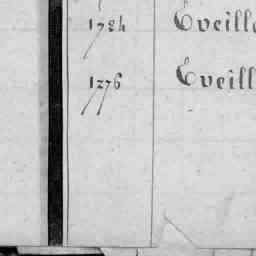 1784 Eveill
1776 Eveill